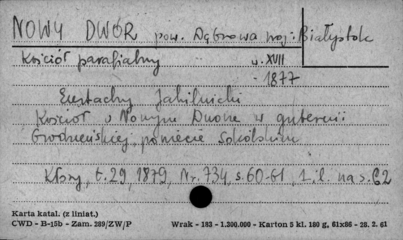 NOWY DWÓR pow. Dąbrowa woj: Białystok
Kościół parafialny w. XVII
- 1877
Eustachy Jahilnicki
Kościół w Nowym Dworze w gubernii
Grodzieńskiej, powiecie Sokólskim
Kłosy, t. 29, 1879, Nr. 734, s. 60-61, 1. il. na s. 62
Karta katal. (z liniat.)
CWD - B-15b - Zam. 289/ZW/P Wrak - 183 - 1.200.000 - Karton 5 kl. 180 g, 61x86 - 28. 2. 61